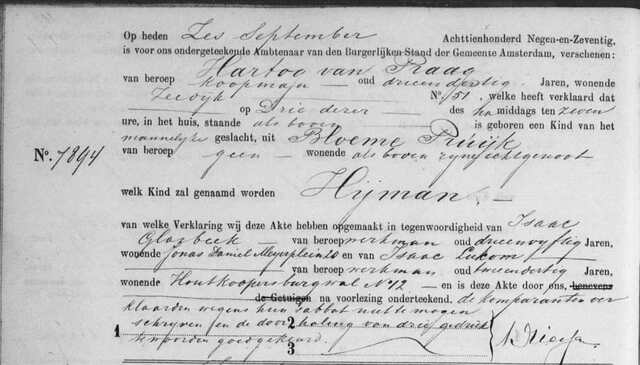 Op heden Zes September Achttienhonderd Negen-en-Zeventig,
is voor ons ondergeteekende Ambtenaar van den Burgerlijken Stand der Gemeente Amsterdam, verschenen:
Hartog van Praag
van beroep koopman oud drieendertig Jaren, wonende
Zeedijk No. 51, welke heeft verklaard dat
op Drie dezer des na middags ten zeven
ure, in het huis, staande als boven is geboren een Kind van het
mannelijke geslacht, uit Bloeme Pruijk
No. 7894 van beroep geen wonende als boven zijne echtgenoot
welk Kind zal genaamd worden Hijman
van welke Verklaring wij deze Akte hebben opgemaakt in tegenwoordigheid van Isaac
van beroep werkman oud drieenvyftig Jaren,
wonende Jonas Daniel Meyerplein 10 en van Isaac
van beroep werkman oud tweeendertig Jaren,
wonende Houtkoopersburgwal No 12 en is deze Akte door ons, benevens
de Getuigen na voorlezing onderteekend. de komparanten ver
klaarden wegens hun sabbat niet te mogen
schryven en de doorhaling van drie gedrukte
woorden goedgekeurd.
1 2 3